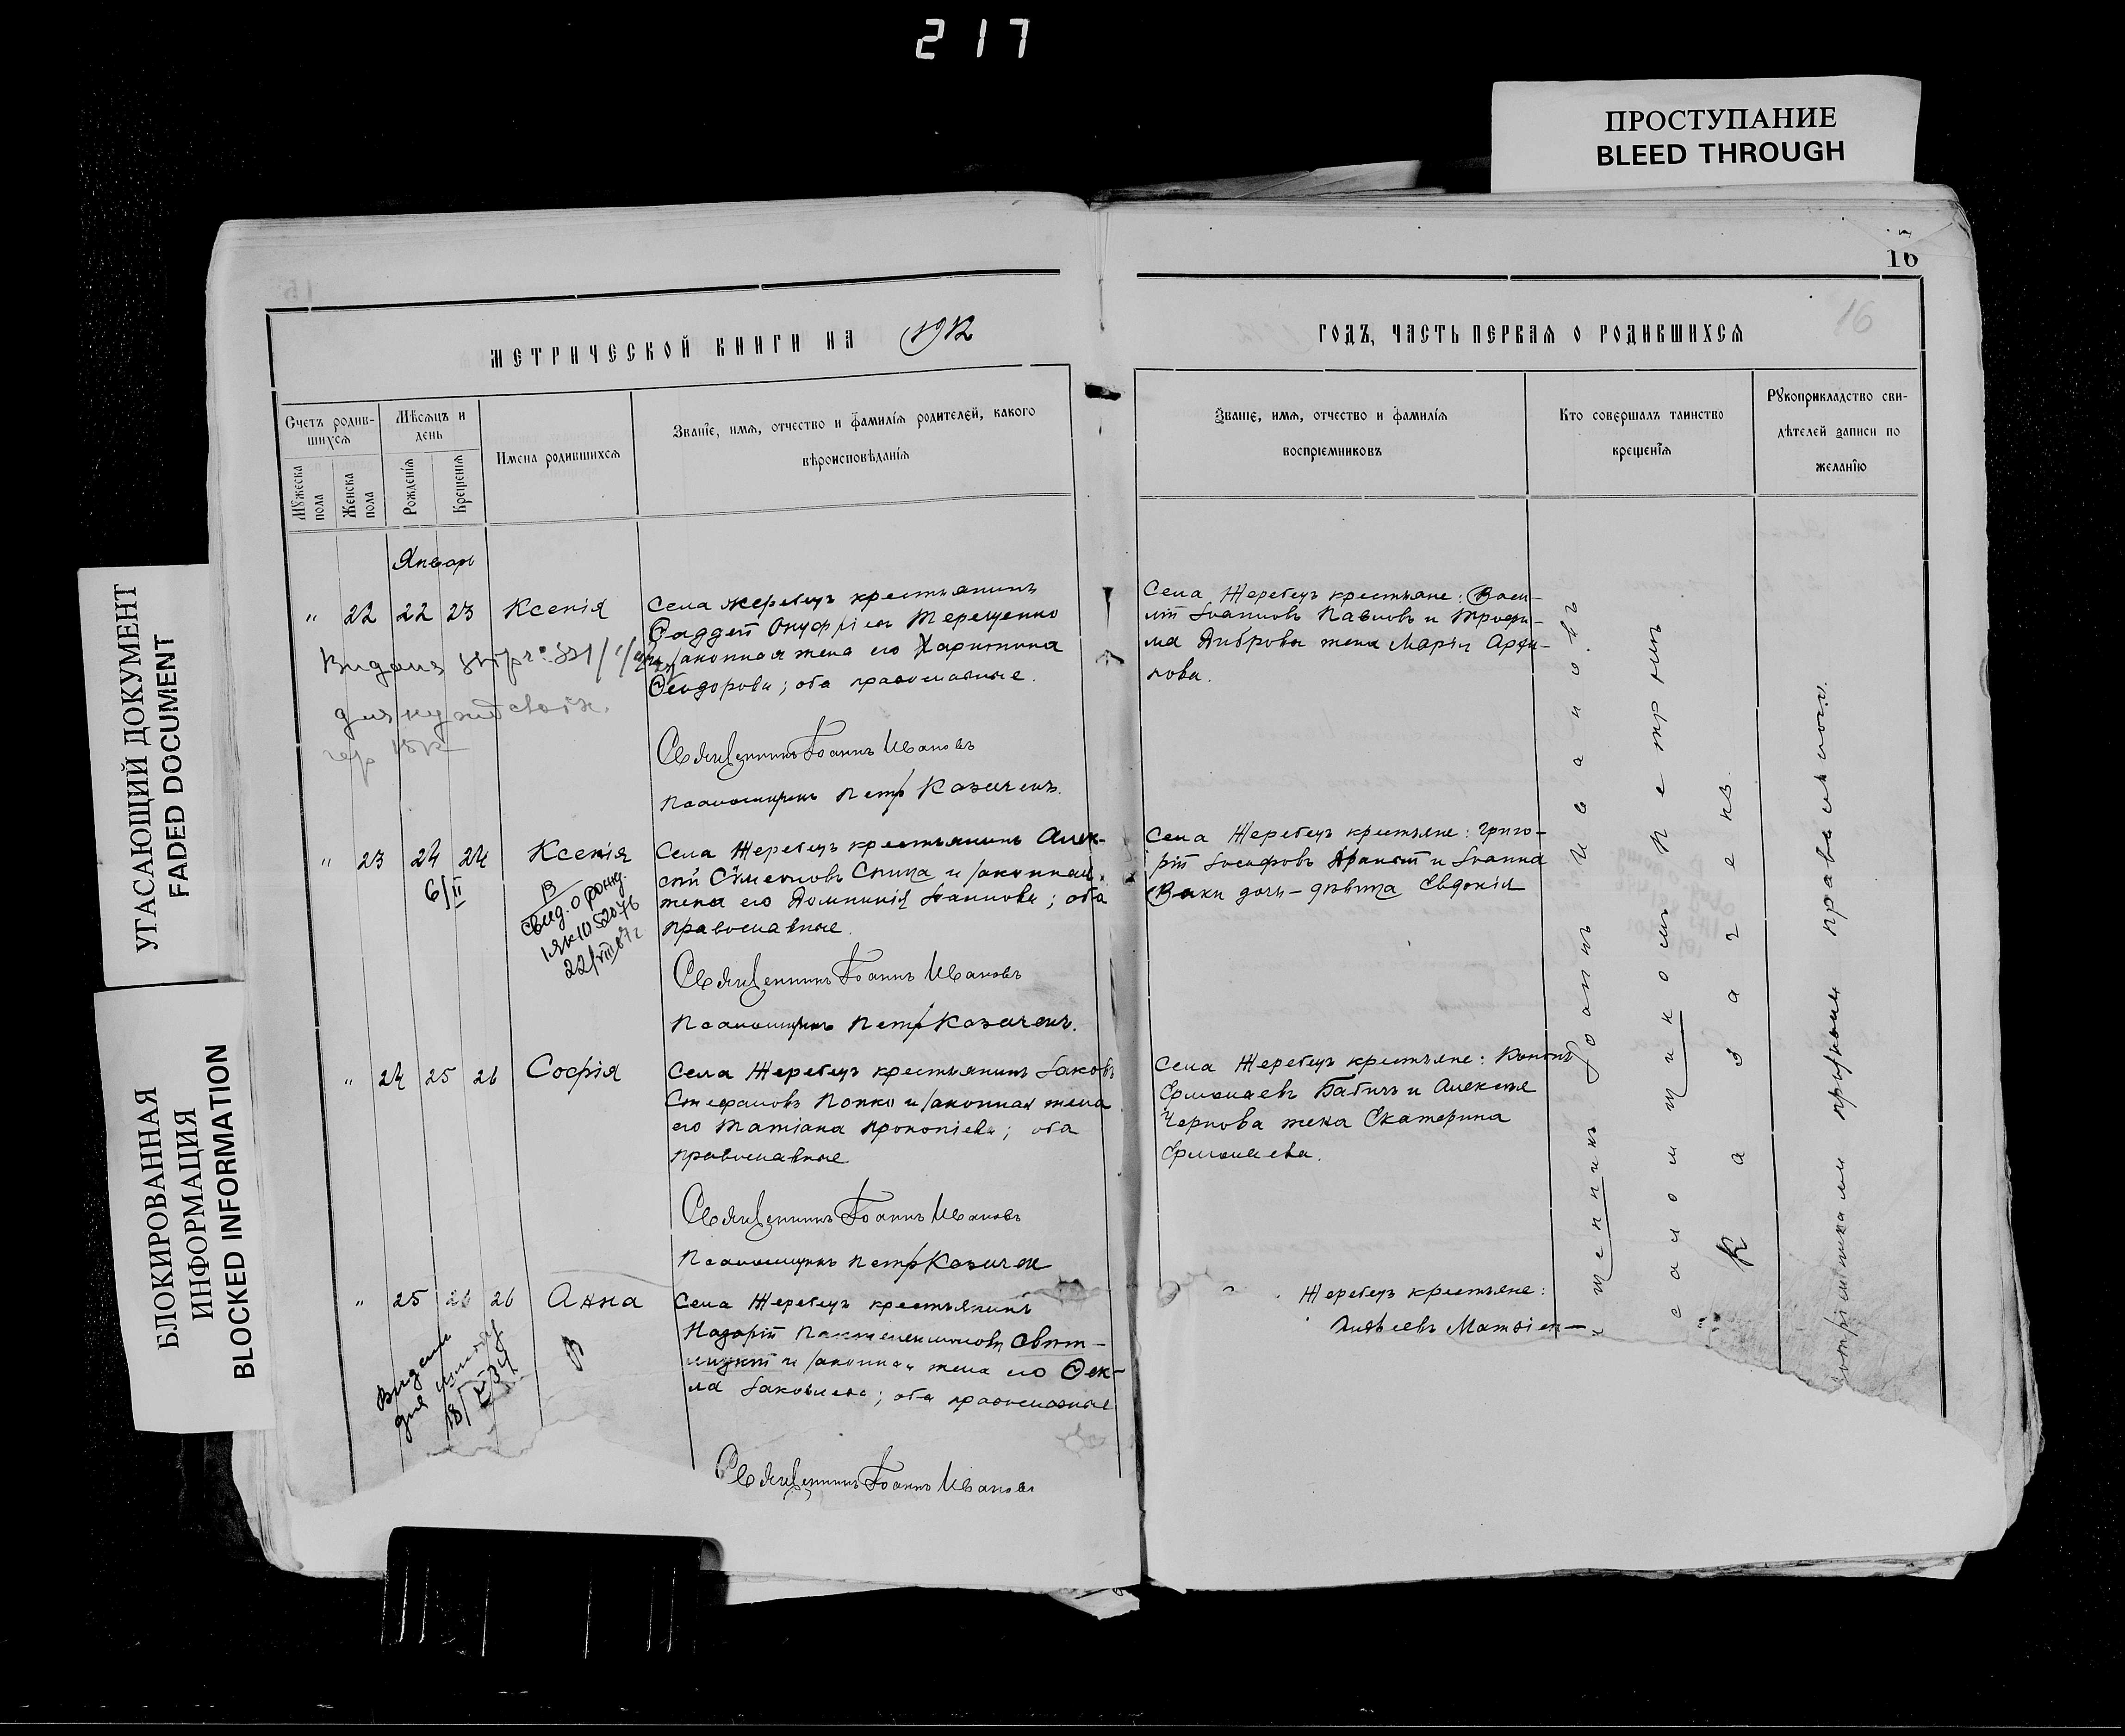 217
ПРОСТУПАНИЕ
BLEED THROUGH
УГАСАЮЩИЙ ДОКУМЕНТ
FADED DOCUMENT
БЛОКИРОВАННАЯ
ИНФОРМАЦИЯ
BLOCKED INFORMATION
16
16
МЕТРИЧЕСКОЙ КНИГИ НА 1912
ГОДЪ, ЧАСТЬ ПЕРВАЯ О РОДИВШИХСЯ
Счетъ родив-
шихся
Мужеска
пола
Женска
пола
Мѣсяцъ и
день
Рожденія
Крещенія
Имена родившихся
Званіе, имя, отчество и фамилія родителей, какого
вѣроисповѣданія
Званіе, имя, отчество и фамилія
воспріемниковъ
Кто совершалъ таинство
крещенія
Рукоприкладство сви-
дѣтелей записи по
желанію
Январь
" 22 22 23 Ксенія
Села Жеребецъ крестьянинъ
Фаддей Онуфріевъ Терещенко
законная жена его Харитина
Феодорова; оба православные.
Священникъ Іоаннъ Ивановъ
Псаломщикъ Петръ Казаченъ.
Села Жеребецъ крестьяне: Васи-
лій Іоанновъ Павловъ и Трофи-
ма Диброва жена Марія
" 23 24 24 Ксенія
6/II
В
свид. о рожд.
22/VIII 87 г
Села Жеребецъ крестьянинъ Алек-
сѣй Симеоновъ Спица и законная
жена его Домникія Іоаннова; оба
православные.
Священникъ Іоаннъ Ивановъ
Псаломщикъ Петръ Казаченъ.
Села Жеребецъ крестьяне: Григо-
рій Іосифовъ и Іоанна
дочь-дѣвица Евдокія
" 24 25 26 Софія
Села Жеребецъ крестьянинъ Іаковъ
Стефановъ Попко и законная жена
его Татіана Прокопіева; оба
православные
Священникъ Іоаннъ Ивановъ
Псаломщикъ Петръ Казачен
Села Жеребецъ крестьяне: Кононъ
Ермолаевъ Бабичъ и Алексѣя
Чернова жена Екатерина
Ермолаева.
" 25 26 26 Анна
В
Видана
для
Села Жеребецъ крестьянинъ
Назарій Пантелеимоновъ Свит-
лицкій и законная жена его Фек-
ла Іаковлева; оба православные
Священникъ Іоаннъ Иванов
Жеребецъ крестьяне:
Матвіен-
щенникъ Іоаннъ Ивановъ.
саломщикомъ Петромъ
Казаченъ.